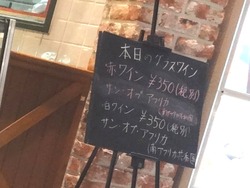 本日のグラスワイン
赤ワイン ¥350(税別)
サン・オブ・アフリカ
白ワイン ¥350(税別)
サン・オブ・アフリカ
(南アフリカ共和国)